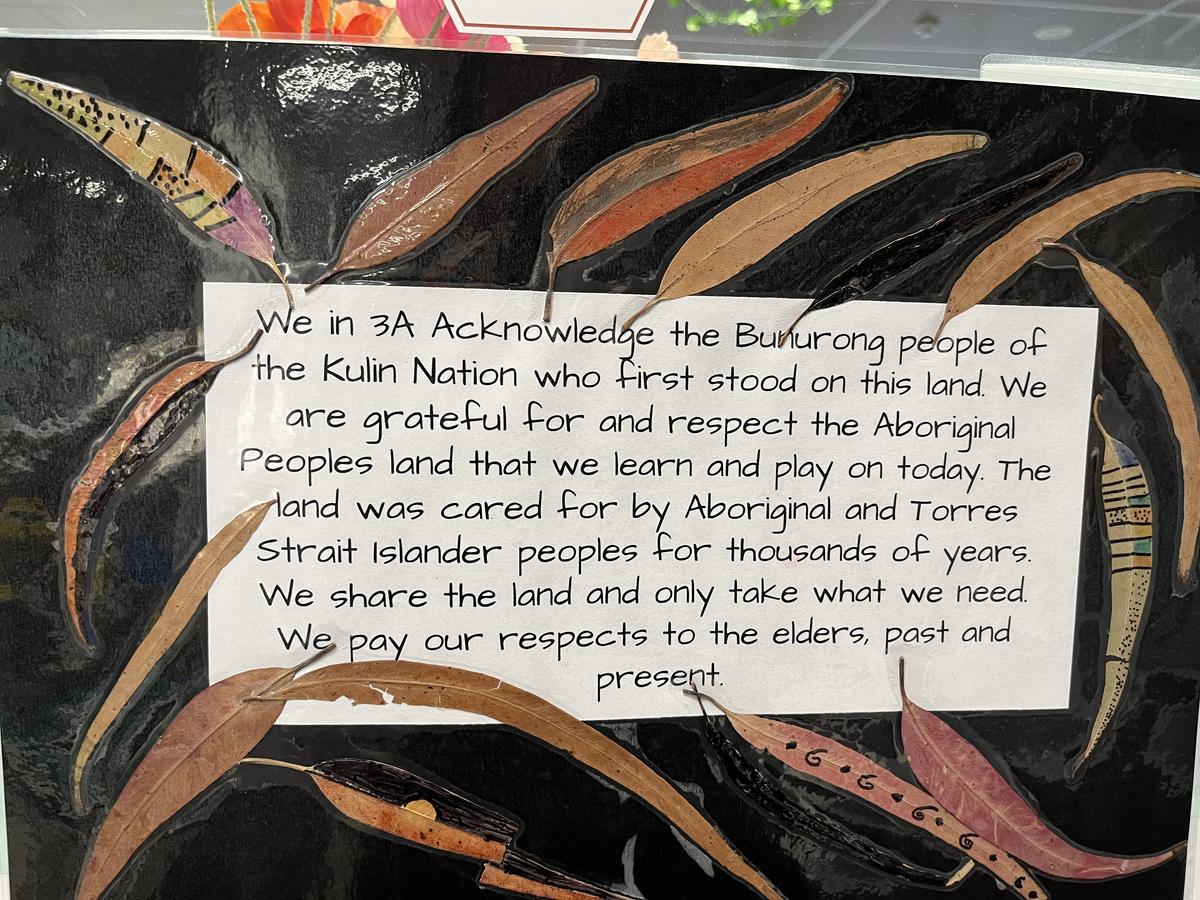 We in 3A Acknowledge the Bunurong people of
the Kulin Nation who first stood on this land. We
are grateful for and respect the Aboriginal
Peoples land that we learn and play on today. The
land was cared for by Aboriginal and Torres
Strait Islander peoples for thousands of years.
We share the land and only take what we need.
We pay our respects to the elders, past and
present.